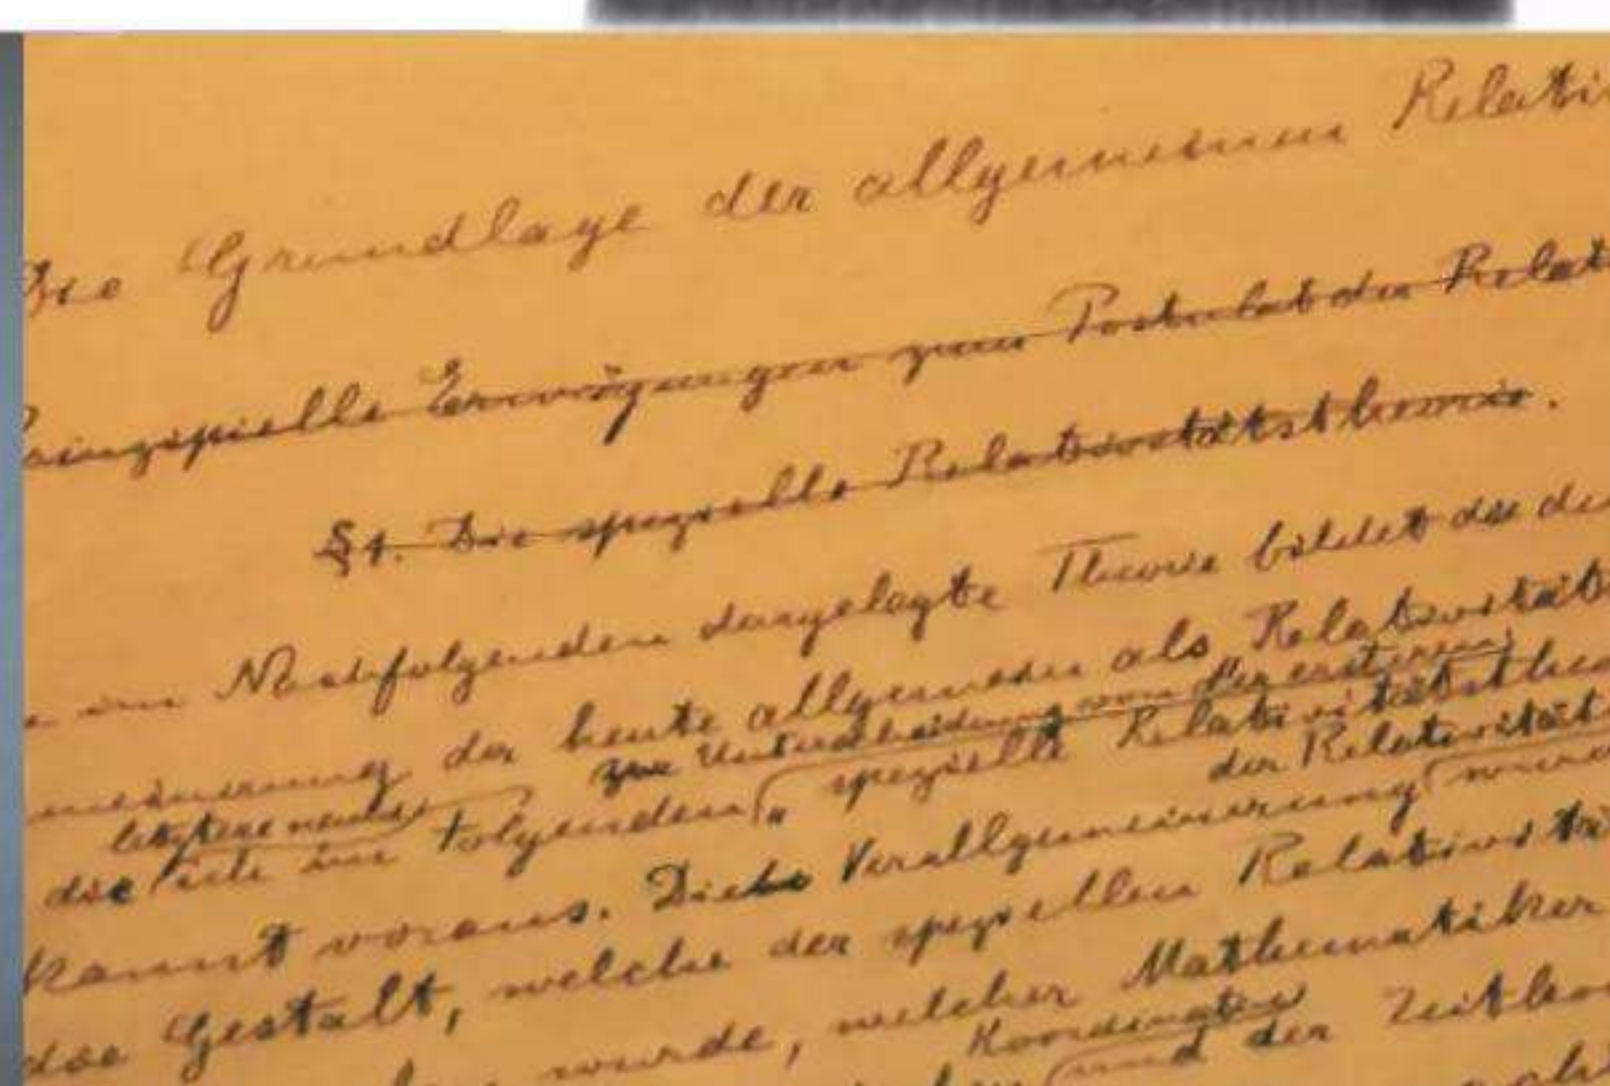 Die Grundlage der allgemeinen Relati
Prinzipielle Erwägungen zum Postulat der Relat
§1. Die spezielle Relativitätstheorie.
im Nachfolgenden dargelegte Theorie bildet die de
meinerung der heute allgemein als Relativitäts
zur Unterscheidung von der ersteren
letztere nenne
die ich im Folgenden „spezielle Relativitätstheo
der Relativitäts
kannt voraus. Diese Verallgemeinerung wurd
die Gestalt, welche der speziellen Relativitä
wurde, welcher Mathematiker
Koordinaten
und der Zeitkoo